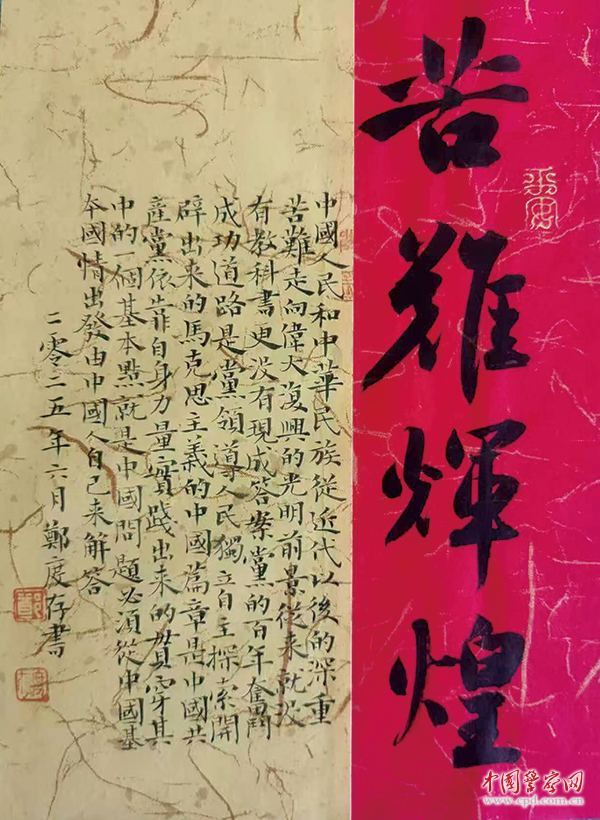 苦難輝煌
中國人民和中華民族從近代以後的深重
苦難走向偉大復興的光明前景從來就沒
有教科書更没有現成答案黨的百年奮鬥
成功道路是黨領導人民獨立自主探索開
辟出来的馬克思主義的中國篇章是中國共
產黨依靠自身力量實踐出來的貫穿其
中的一個基本點就是中國問題必須從中國基
本國情出發由中國人自己來解答
二零二五年六月鄭度存書
中国警察网
www.cpd.com.cn